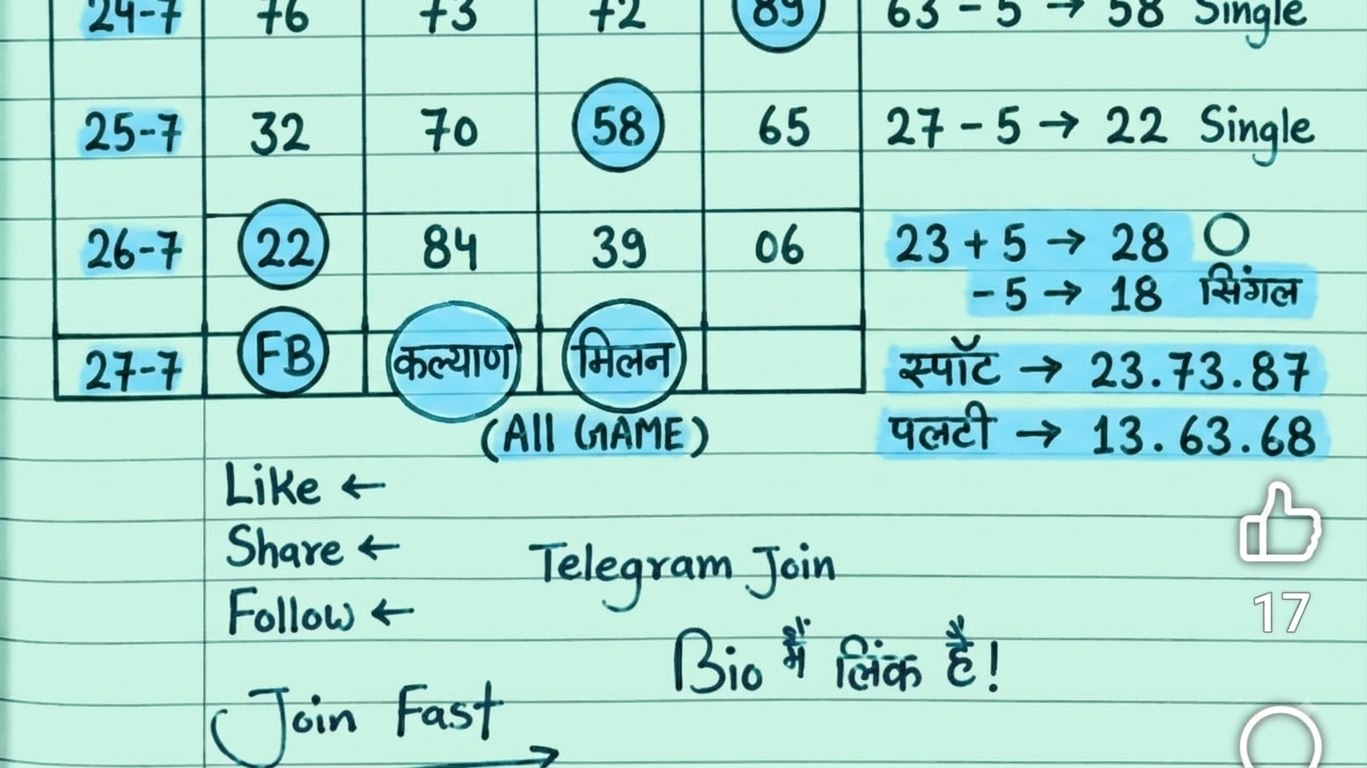 24-7 76 73 72 89 63 - 5 → 58 Single
25-7 32 70 58 65 27 - 5 → 22 Single
26-7 22 84 39 06 23 + 5 → 28
- 5 → 18 सिंगल
27-7 FB कल्याण मिलन स्पॉट → 23.73.87
(All GAME) पलटी → 13.63.68
Like ←
Share ← Telegram Join
Follow ←
Bio में लिंक है!
Join Fast
17